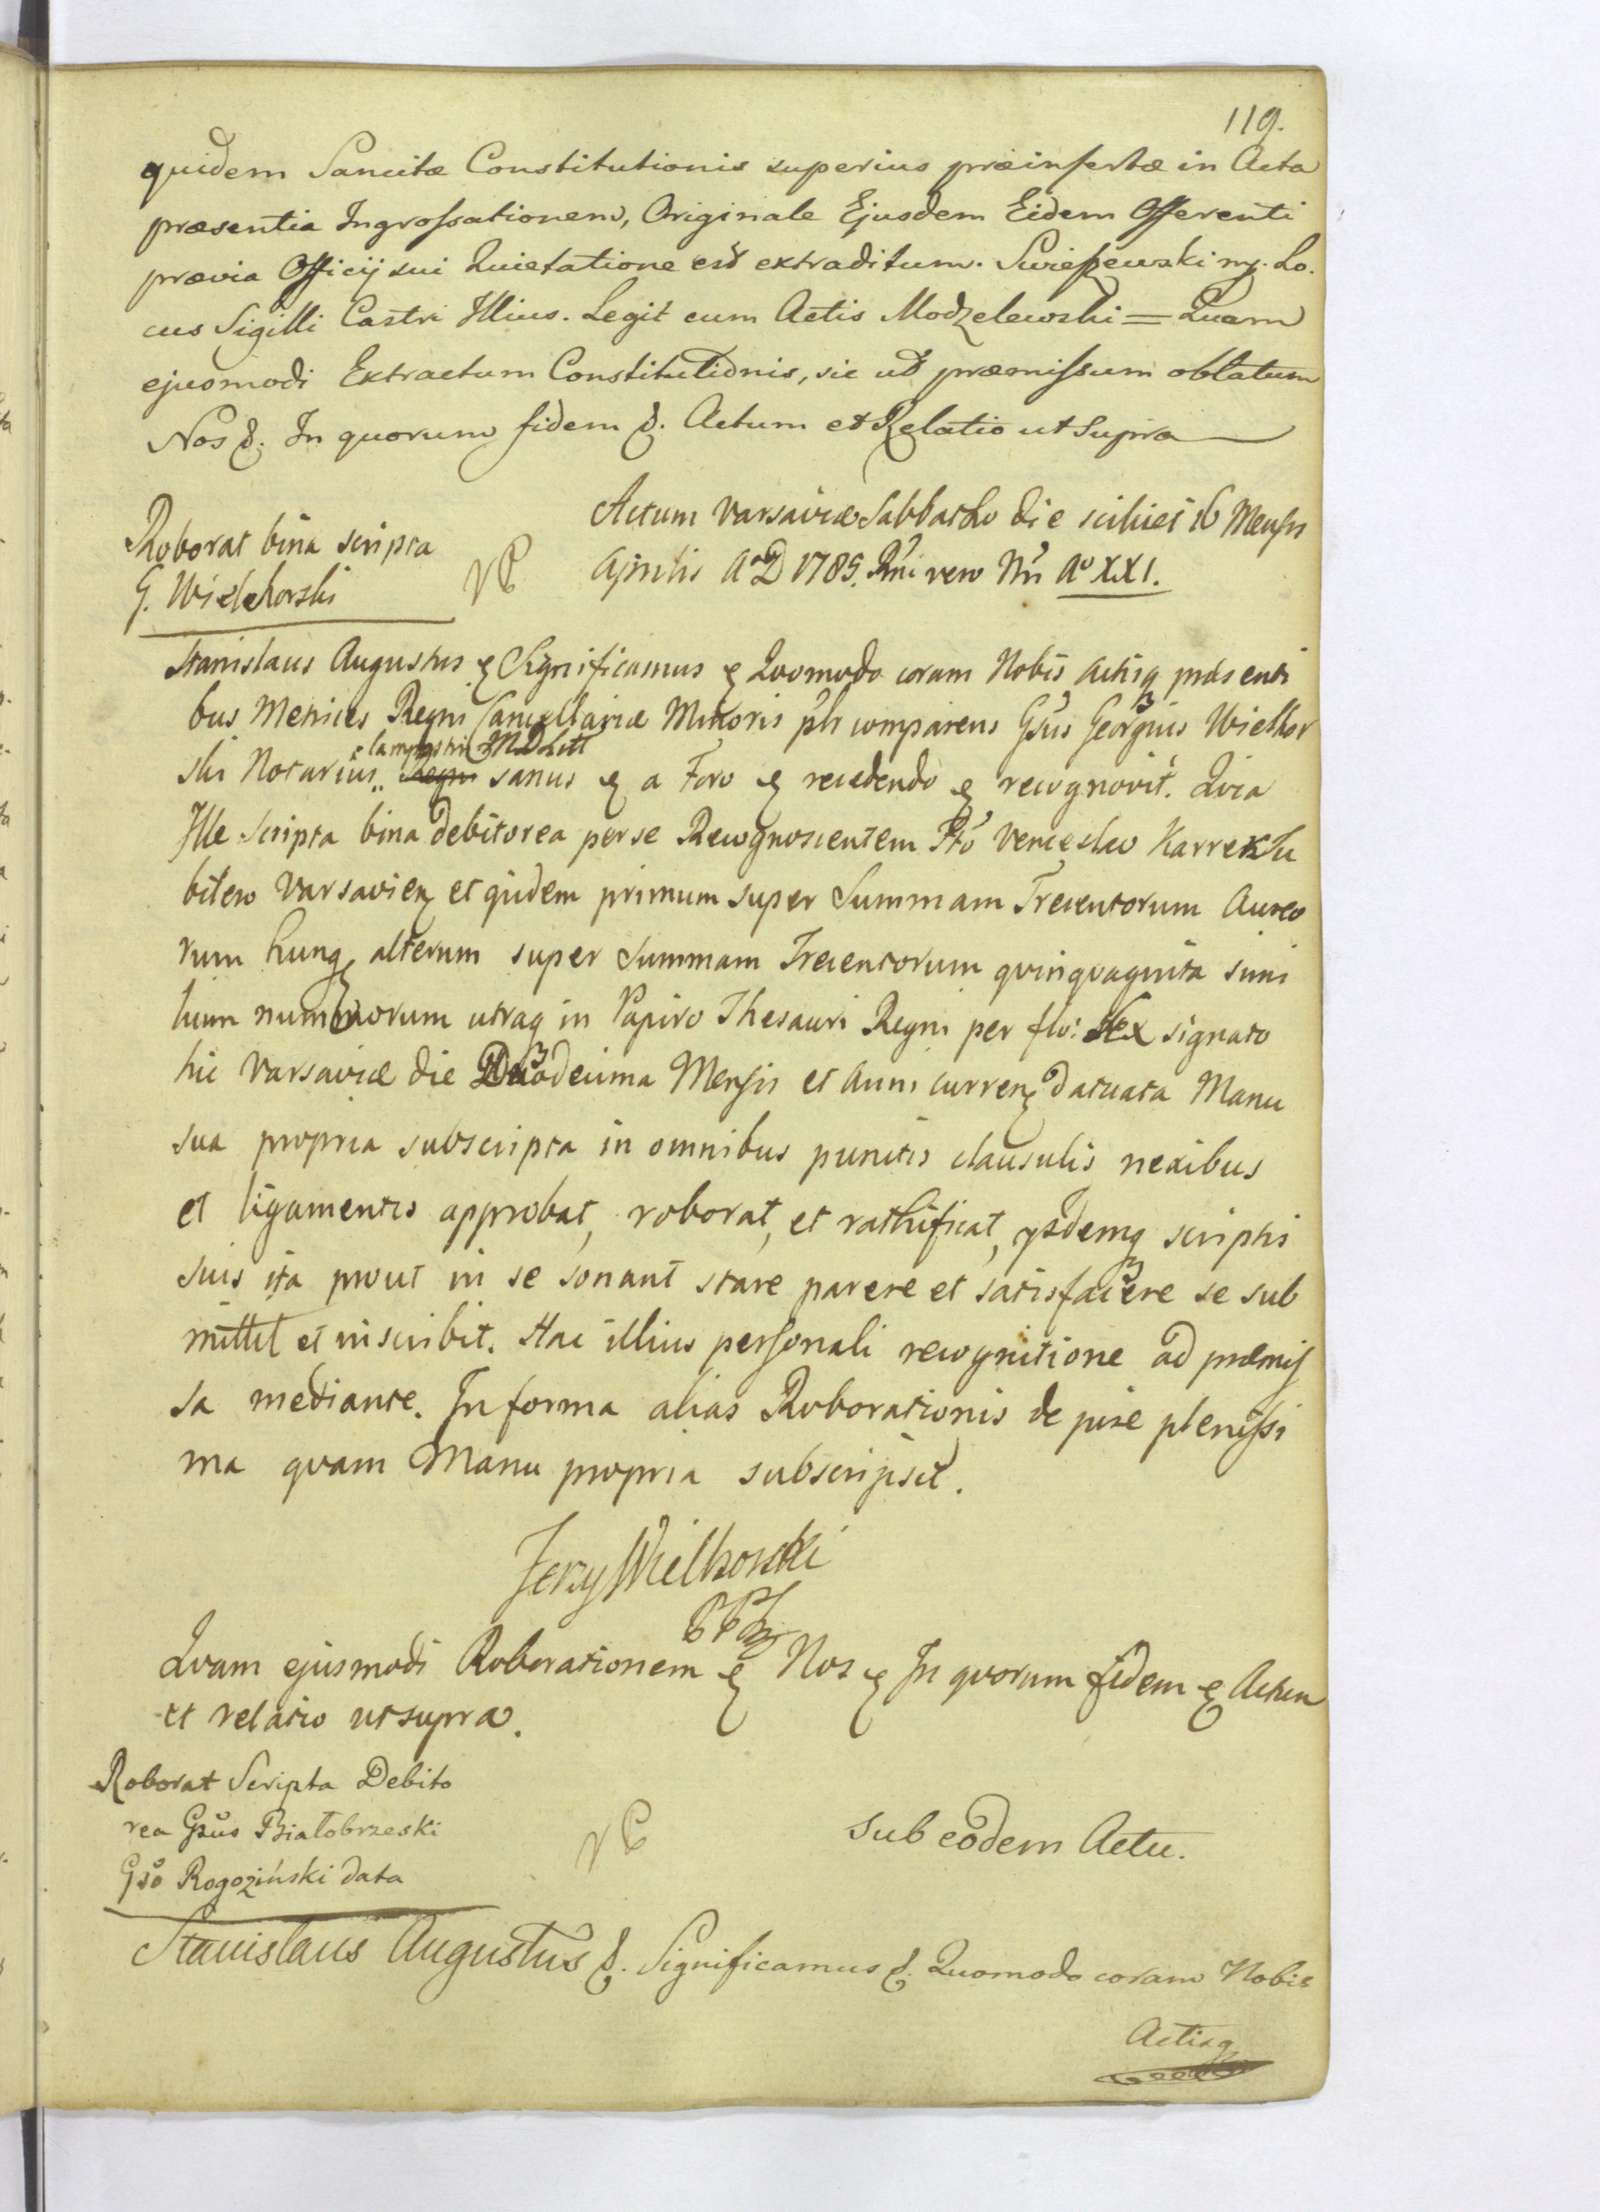 119.
quidem Sancitæ Constitutionis superius præinsertæ in Acta
præsentia Ingrossationem, Originale Ejusdem Eidem Offerenti
prævia Officij sui Quietatione est extraditum. Swieszewski mp. Lo.
cus Sigilli Castri Illius. Legit cum Actis Modzelewski = Quam
ejusmodi Extractum Constitutionis, sic ut præmissum oblatum
Nos &. In quorum fidem &. Actum et Relatio ut Supra
Roborat bina scripta
G. Wielehorski
Actum Varsaviæ Sabbatho die scilicet 16 Mensis
Aprilis A°D 1785. Rñi vero Nri A° XXI.
Stanislaus Augustus & Significamus & Quomodo coram Nobis Actisq præsenti
bus Metrices Regni Cancellariæ Minoris plr comparens Gsus Georgius Wielhor
ski Notarius Campestris M D Litt Regni sanus & a Foro & recedendo & recognovit. Quia
Ille scripta bina debitorea per se Recognoscentem Ptō Venceslao Karre
bitero Varsavien et qŭidem primum super Summam Trecentorum Aureo
rum hung, alterum super Summam Trecentorum quinquaginta simi
lium nummorum utraq in Papiro Thesauri Regni per flo: sex signato
hic Varsaviæ die Duodecima Mensis et Anni curren datuata Manu
sua propria subscripta in omnibus punctis clausulis nexibus
et ligamentis approbat, roborat, et rathificat, ysdemq scriptis
suis ita prout in se sonant stare parere et satisfacere se sub
mittit et inscribit. Hac illius personali recognitione ad præmis
sa mediante. In forma alias Roborationis de jure plenissi
ma quam Manu propria subscripsit.
Jerzy Wielhorski
PPL
Quam ejusmodi Roborationem & Nos & In quorum fidem & Actum
et relatio ut supra.
Roborat Scripta Debito
rea Gsus Białobrzeski
Gso Rogoziński data
Sub eodem Actu.
Stanislaus Augustus &. Significamus &. Quomodo coram Nobis
Actisq